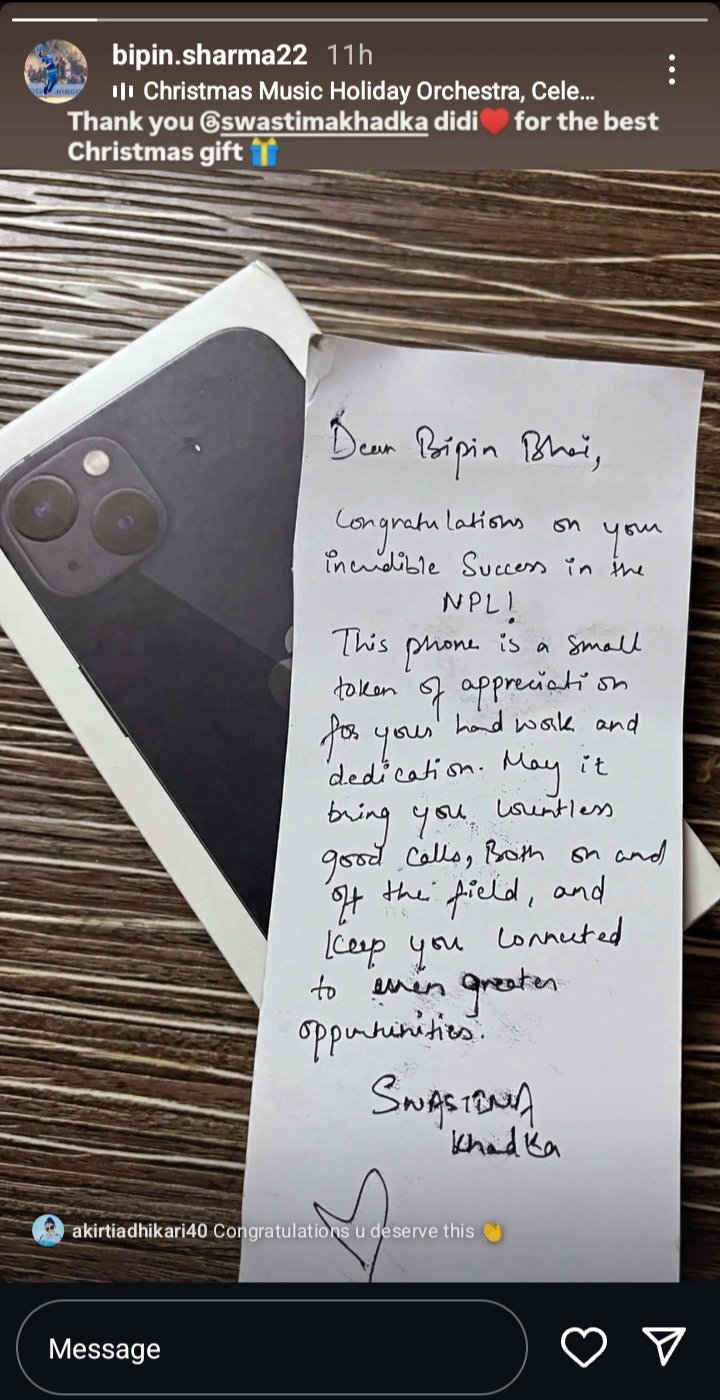 bipin.sharma22 11h
Christmas Music Holiday Orchestra, Cele...
Thank you @swastimakhadka didi❤️ for the best
Christmas gift 🎁
Dear Bipin Bhai,
Congratulations on your
incredible Success in the
NPL!
This phone is a small
token of appreciation
for your hard work and
dedication. May it
bring you countless
good calls, Both on and
off the field, and
keep you connected
to even greater
oppurtunities.
SWASTIMA
Khadka
akirtiadhikari40 Congratulations u deserve this 👏
Message